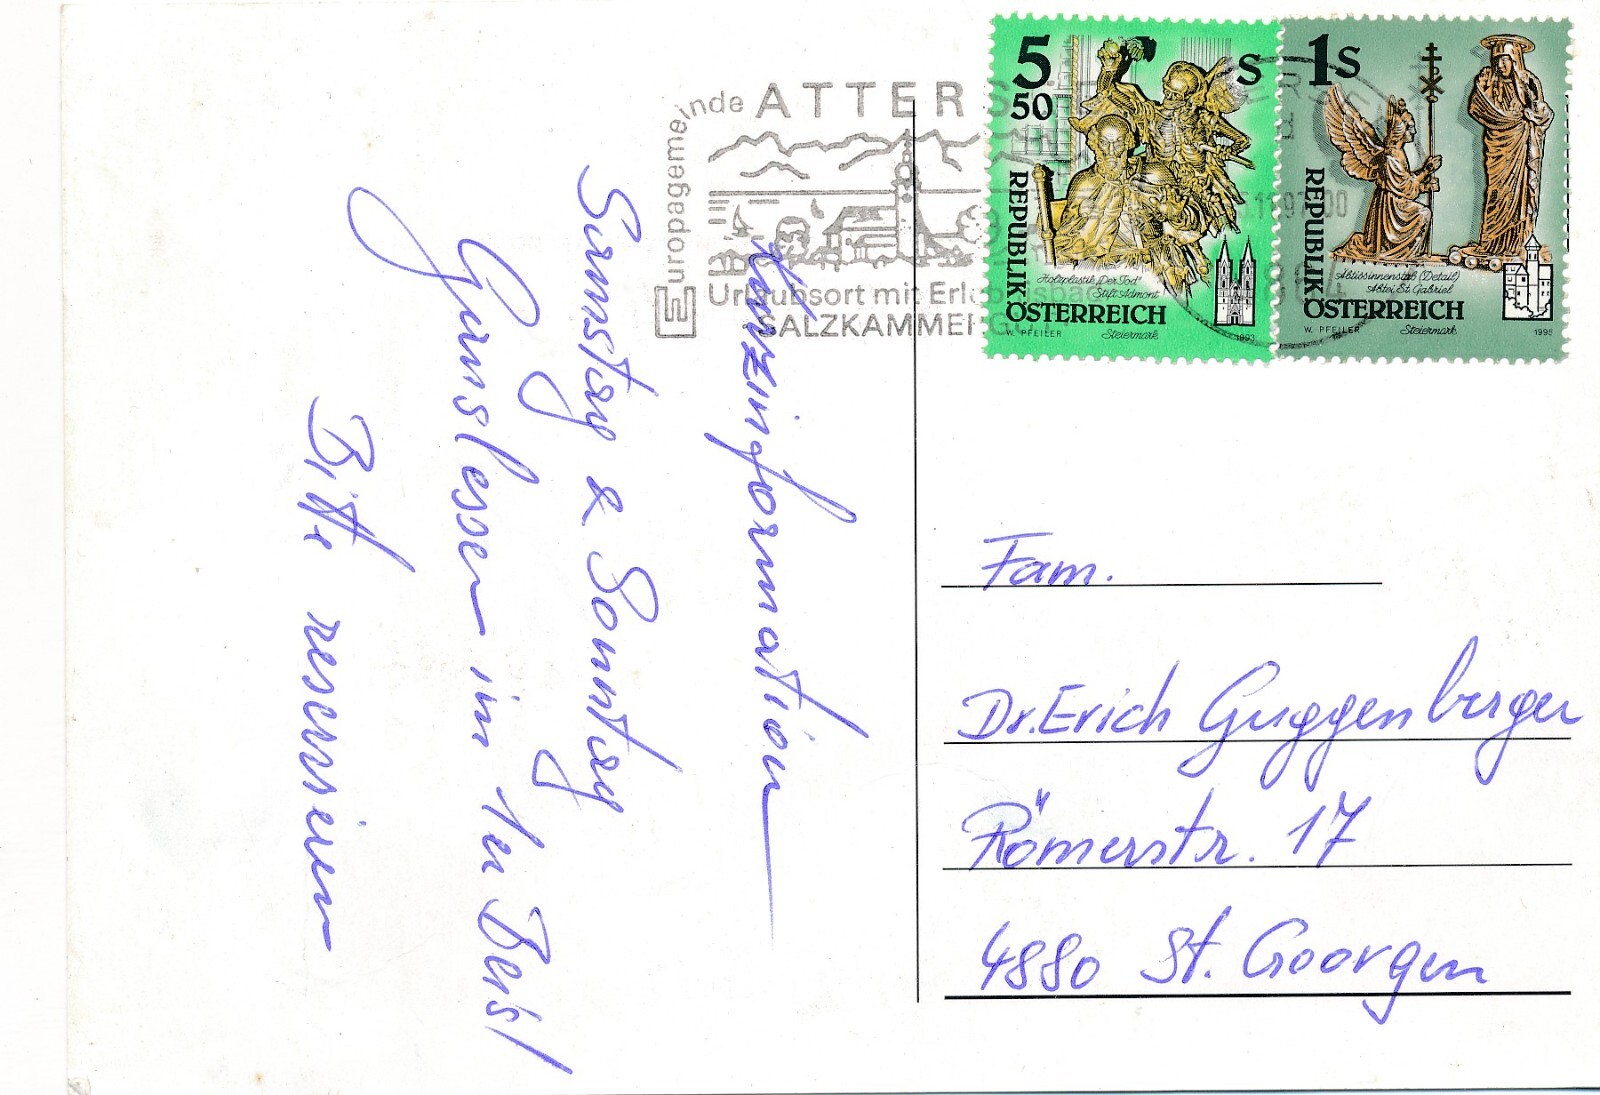 Kurzinformation
Samstag & Sonntag
Gansl essen im 1er Beisl
Bitte reservieren
Europagemeinde ATTERS
Urlaubsort mit
SALZKAMMERGUT
5 50 S
REPUBLIK ÖSTERREICH
Holzplastik „Der Tod"
Stift Admont
Steiermark
W. PFEILER
1993
1 S
REPUBLIK ÖSTERREICH
Äbtissinnenstab (Detail)
Abtei St. Gabriel
Steiermark
W. PFEILER
1995
Fam.
Dr. Erich Guggenberger
Römerstr. 17
4880 St. Georgen